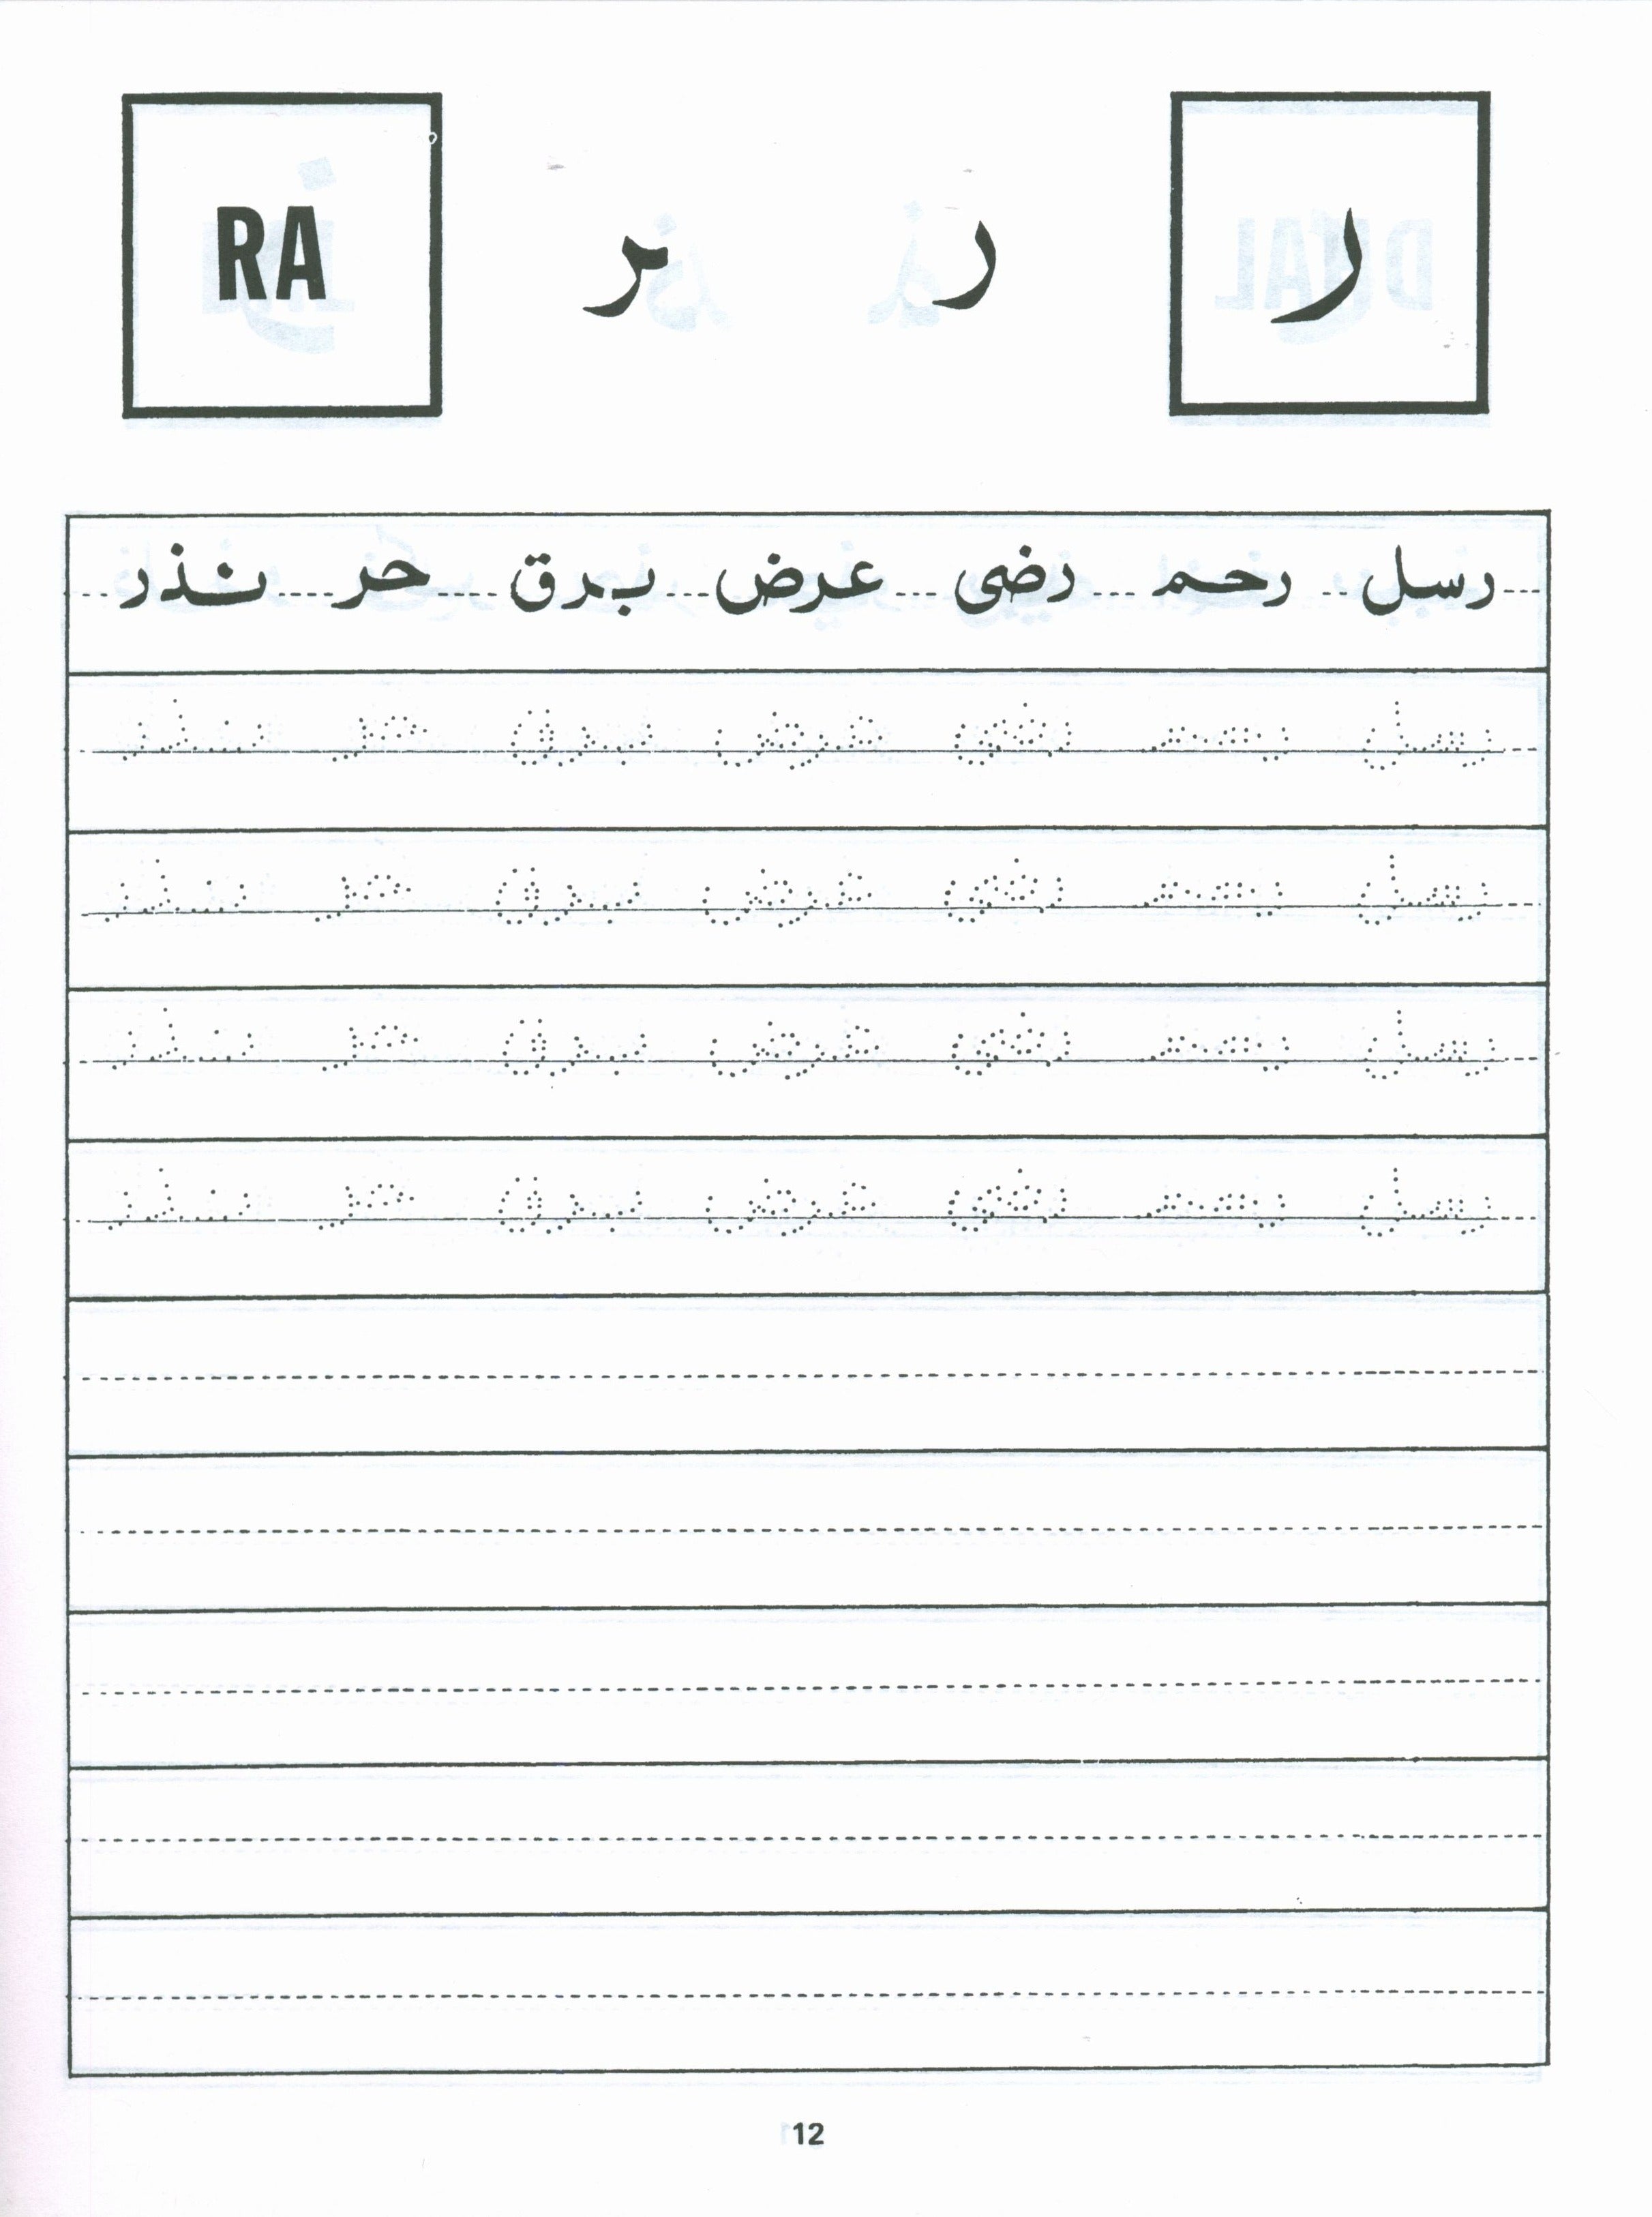 ر ر ـر RA
رسل رحم رضى عرض برق حر نذر
رسل رحم رضى عرض برق حر نذر
رسل رحم رضى عرض برق حر نذر
رسل رحم رضى عرض برق حر نذر
رسل رحم رضى عرض برق حر نذر
12